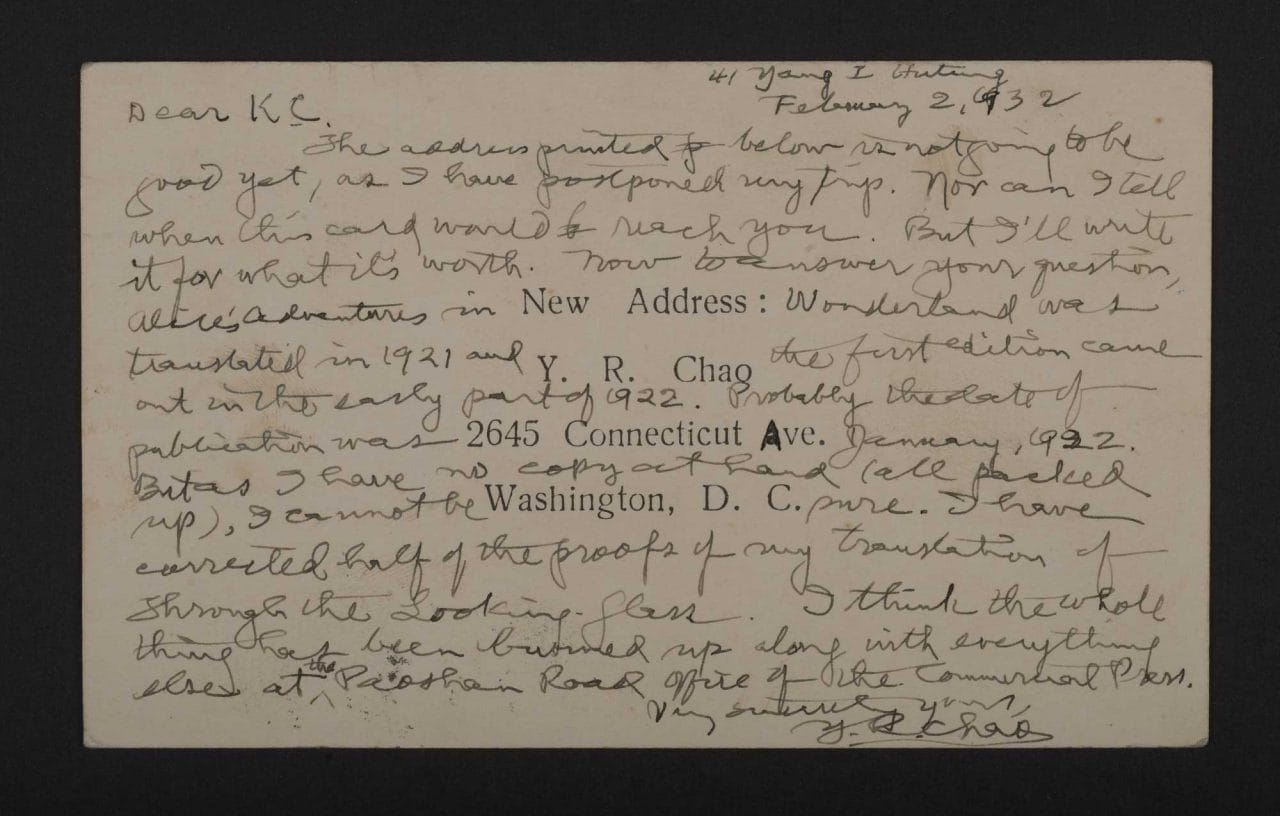 41 Yang I Hutung
February 2, 1932
Dear KC.
The address printed below is not going to be
good yet, as I have postponed my trip. Nor can I tell
when this card would reach you. But I'll write
it for what it's worth. Now to answer your question,
Alice's Adventures in New Address: Wonderland was
translated in 1921 and Y. R. Chao the first edition came
out in the early part of 1922. Probably the date of
publication was 2645 Connecticut Ave. January, 1922.
But as I have no copy at hand (all packed
up), I cannot be Washington, D. C. sure. I have
corrected half of the proofs of my translation of
Through the Looking-Glass. I think the whole
thing has been burned up along with everything
else at the Paoshan Road office of the Commercial Press.
Very sincerely yours,
Y. R. Chao